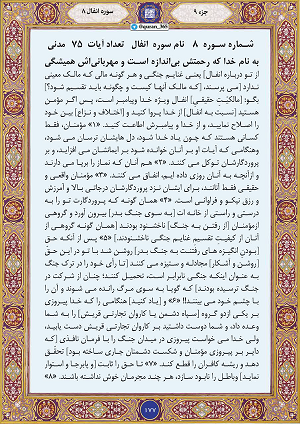 جزء ۹
@quran_365
سوره انفال ۸
شماره سوره ۸ نام سوره انفال تعداد آیات ۷۵ مدنی
به نام خدا که رحمتش بی‌اندازه است و مهربانی‌اش همیشگی
از تو درباره انفال [یعنی غنایم جنگی و هر گونه مالی که مالک معینی
ندارد] می پرسند، [که مالک آنها کیست و چگونه باید تقسیم شود؟]
بگو: [مالکیّتِ حقیقی] انفال ویژه خدا و پیامبر است، پس اگر مؤمن
هستید [نسبت به انفال] از خدا پروا کنید و [اختلاف و نزاع] بین خود
را اصلاح نمایید، و از خدا و پیامبرش اطاعت کنید. «۱» مؤمنان، فقط
کسانی هستند که چون یاد خدا شود، دل هایشان ترسان می شود،
وهنگامی که آیات او بر آنان خوانده شود بر ایمانشان می افزاید، و بر
پروردگارشان توکل می کنند. «۲» هم آنان که نماز را برپا می دارند
و ازآنچه به آنان روزی داده ایم، انفاق می کنند. «۳» مؤمنان واقعی و
حقیقی فقط آنانند، برای ایشان نزد پروردگارشان درجاتی بالا و آمرزش
و رزق نیکو و فراوانی است. «۴» همان گونه که پروردگارت تو را به
درستی و راستی از خانه ات [به سوی جنگ بدر] بیرون آورد و گروهی
ازمؤمنان [از رفتن به جنگ] ناخشنود بودند [همان گونه گروهی از
آنان از کیفیت تقسیم غنایم جنگی ناخشنودند]. «۵» پس از آنکه حق
[بودن انگیزه های رفتنت به جنگ بدر] روشن شد با تو در این حق
[روشن و آشکار] مجادله و ستیزه می کنند [تا رأی خود را در ترک جنگ
به عنوان اینکه جنگی نابرابر است، تحمیل کنند؛ چنان از شرکت در
جنگ ترسیده بودند] که گویا به سوی مرگ رانده می شوند و آن را
با چشم خود می بینند!! «۶» و [یاد کنید] هنگامی را که خدا پیروزی
بر یکی ازدو گروه [سپاه دشمن یا کاروان تجارتی قریش] را به شما
وعده داد، و شما دوست داشتید بر کاروان تجارتی قریش دست یابید،
ولی خدا می خواست پیروزی در میدان جنگ را با فرمان نافذی [که
دایر بر پیروزی مؤمنان و شکست دشمنان جاری ساخته بود] تحقق
دهد و ریشه کافران را قطع کند. «۷» تا حق را ثابت [و پابرجا و استوار
نماید] وباطل را نابود سازد، هر چند مجرمان خوش نداشته باشند. «۸»
۱۷۷